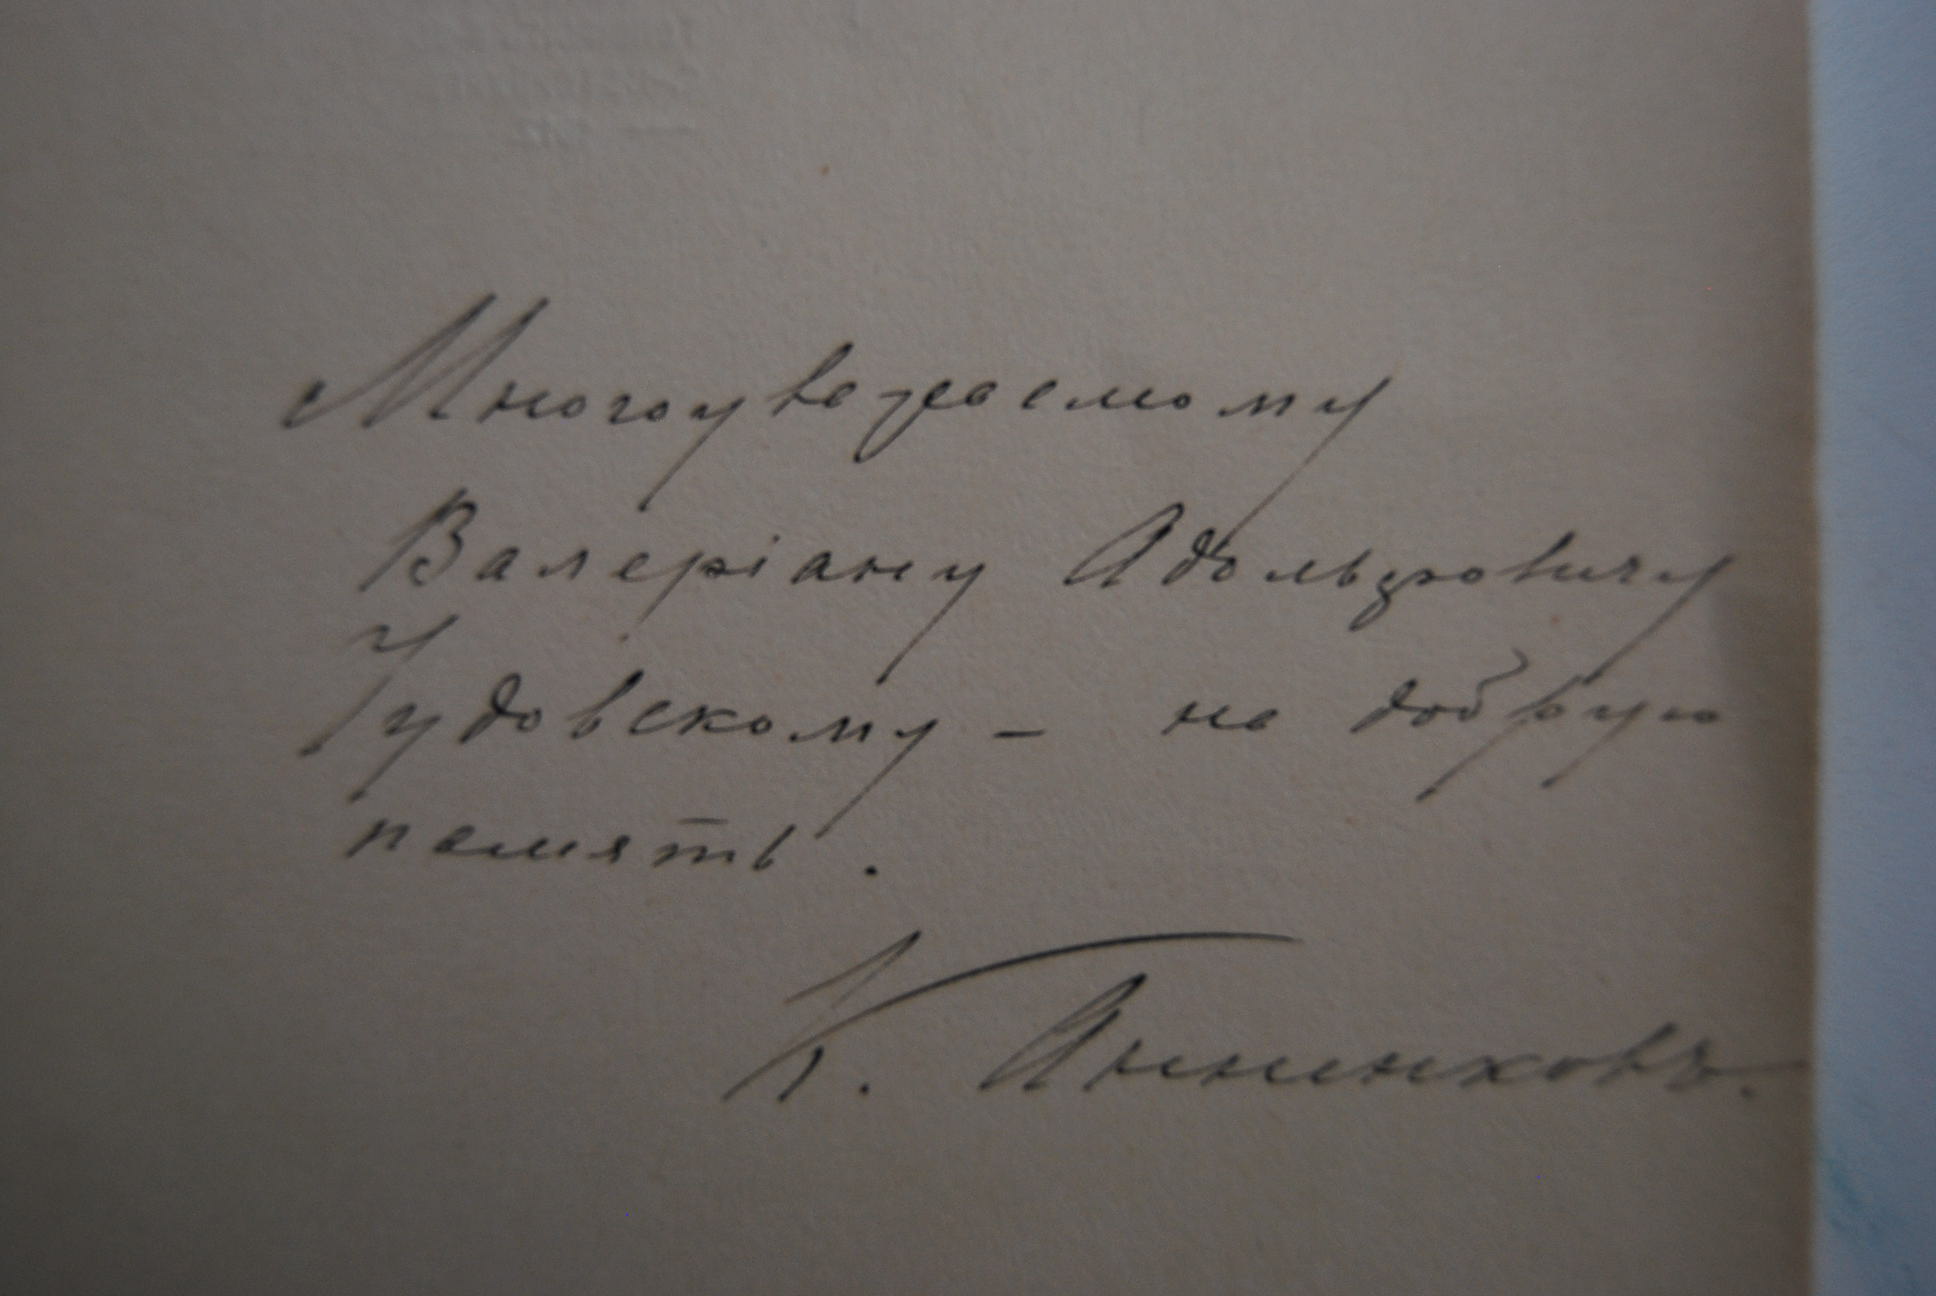 Многоуважаемому
Валеріану Адольфовичу
Чудовскому — на добрую
память.
К. Анненковъ.